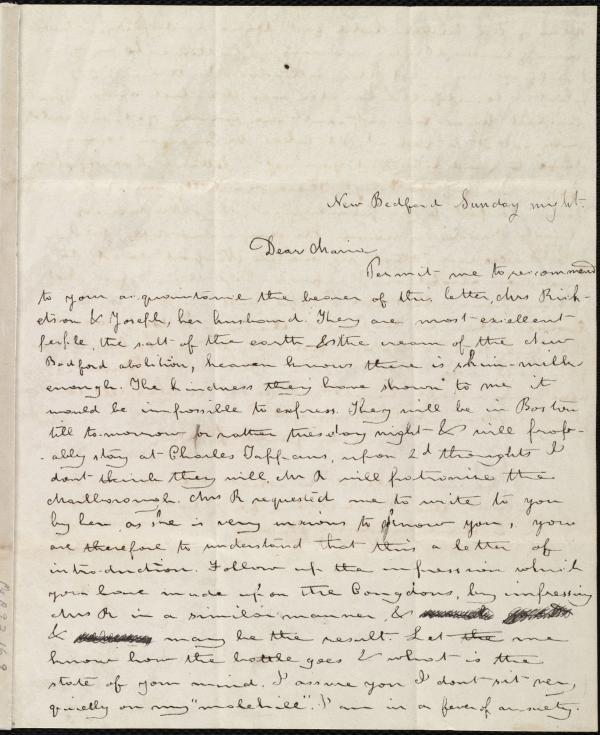 New Bedford Sunday night.
Dear Maria
Permit me to recommend
to your acquaintance the bearer of this letter, Mrs Rick-
etson & Joseph, her husband. They are most excellent
people, the salt of the earth & the cream of the New
Bedford abolition, heaven knows there is skim-milk
enough. The kindness they have shown to me it
would be impossible to express. They will be in Boston
till to-morrow or rather tuesday night & will prob-
-ably stay at Charles Tappans, upon 2d thoughts I
dont think they will, Mr R will patronise the
Marlborough. Mrs R requested me to write to you
by her as she is very anxious to know you, you
are therefore to understand that this a letter of
introduction. Follow up the impression which
you have made upon the Congdons, by impressing
Mrs R in a similar manner, &
& may be the result. Let the me
know how the battle goes & what is the
state of your mind. I assure you I dont sit very
quietly on my "molehill". I am in a fever of anxiety.